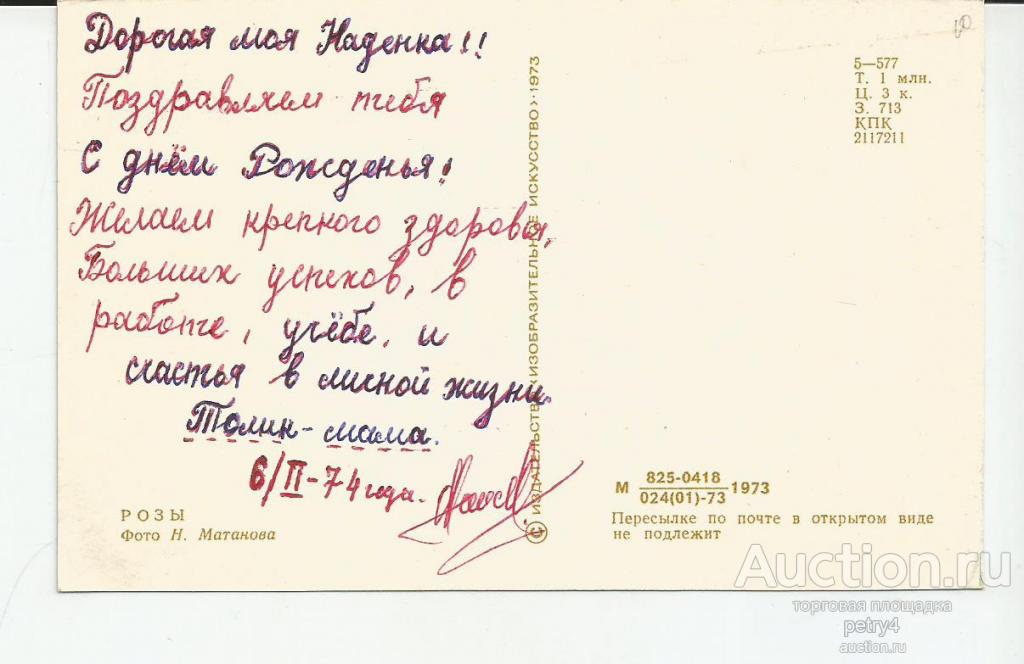 Дорогая моя Наденка!!
Поздравляем тебя
С днём Рожденья!
Желаем крепного здоровья,
Больших успехов, в
работе, учёбе, и
счастья в лисной жизни.
Толик-мама.
6/II-74 года.
РОЗЫ
Фото Н. Матанова
© ИЗДАТЕЛЬСТВО «ИЗОБРАЗИТЕЛЬНОЕ ИСКУССТВО» · 1973
10
5—577
Т. 1 млн.
Ц. 3 к.
З. 713
КПК
2117211
М 825-0418 1973
024(01)-73
Пересылке по почте в открытом виде
не подлежит
Auction.ru
торговая площадка
petry4
auction.ru